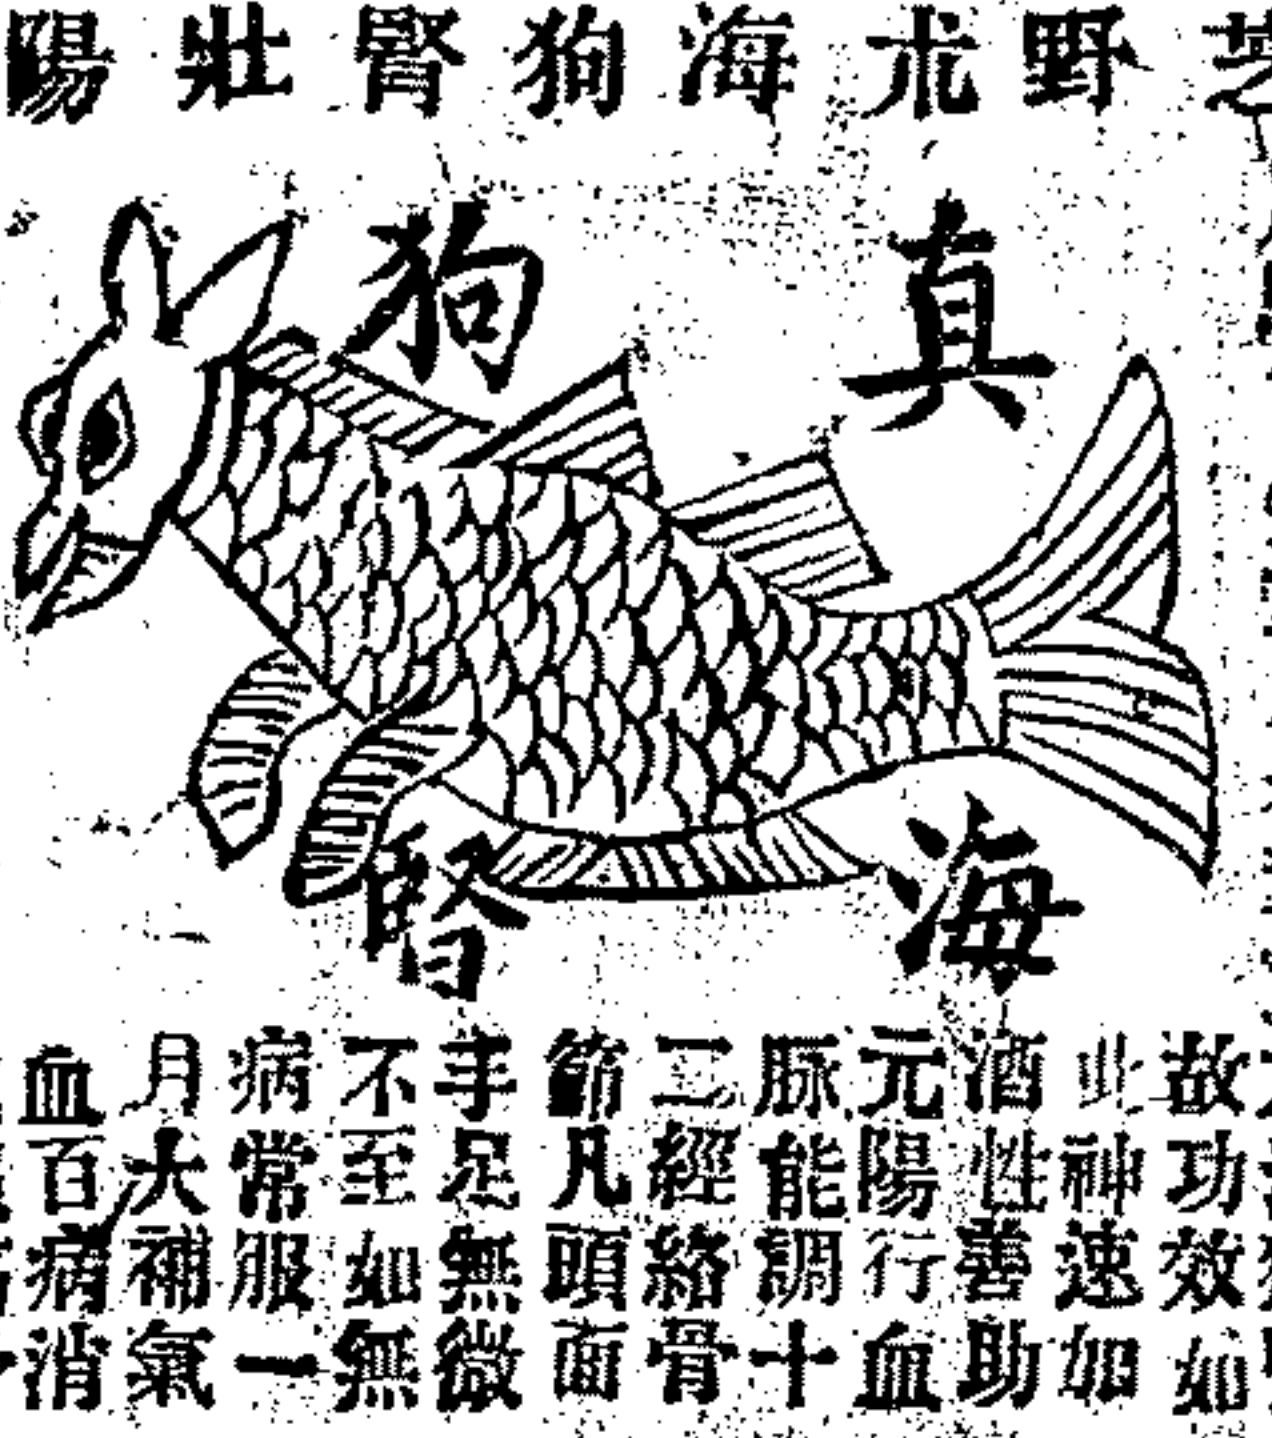 芝野朮海狗腎壯陽
真海
狗腎
故功效如
此神速加
酒性善助
元陽行血
脉能調十
二經絡骨
節凡頭面
手足無微
不至如無
病常服一
月大補氣
血百病消